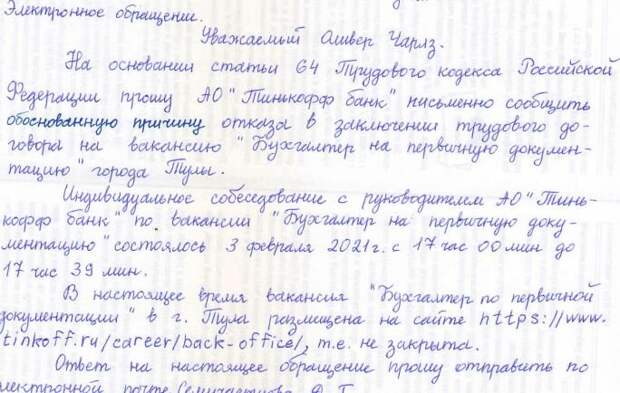 Электронное обращение.
Уважаемый Оливер Чарлз.
На основании статьи 64 Трудового кодекса Российской
Федерации прошу АО "Тинькофф банк" письменно сообщить
обоснованную причину отказа в заключении трудового до-
говора на вакансию "Бухгалтер на первичную докумен-
тацию" города Тулы.
Индивидуальное собеседование с руководителем АО "Тинь-
кофф банк" по вакансии "Бухгалтер на первичную доку-
ментацию" состоялось 3 февраля 2021г. с 17 час 00 мин до
17 час 39 мин.
В настоящее время вакансия "Бухгалтер по первичной
документации" в г. Тула размещена на сайте https://www.
tinkoff.ru/career/back-office/, т.е. не закрыта.
Ответ на настоящее обращение прошу отправить по
электронной почте